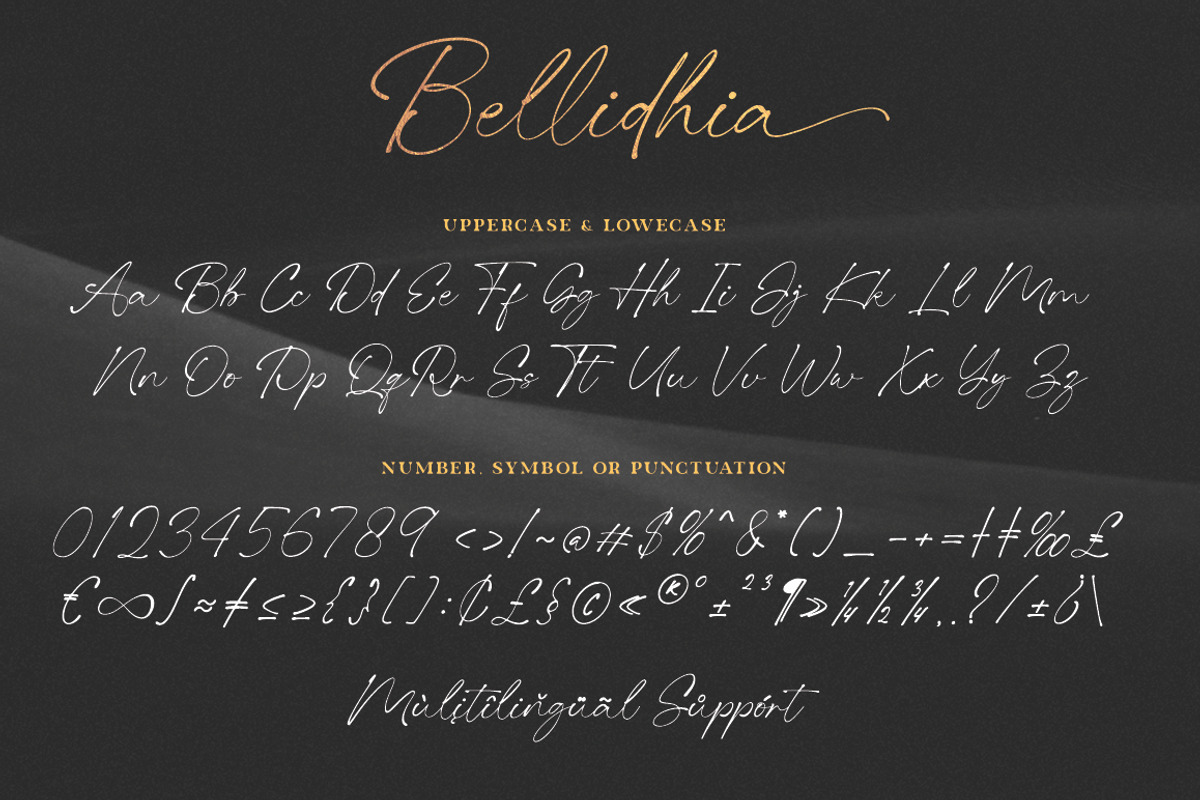 Bellidhia
UPPERCASE & LOWECASE
Aa Bb Cc Dd Ee Ff Gg Hh Ii Jj Kk Ll Mm
Nn Oo Pp Qq Rr Ss Tt Uu Vv Ww Xx Yy Zz
NUMBER. SYMBOL OR PUNCTUATION
0123456789 <>!~@#$%^&*()_-+=†‡‰£
€∞∫≈≠≤≥{}[]:₵£§©«®°±²³¶»¼½¾,.?/±¿\
Mùlịtîliňgüãl Sůppórt